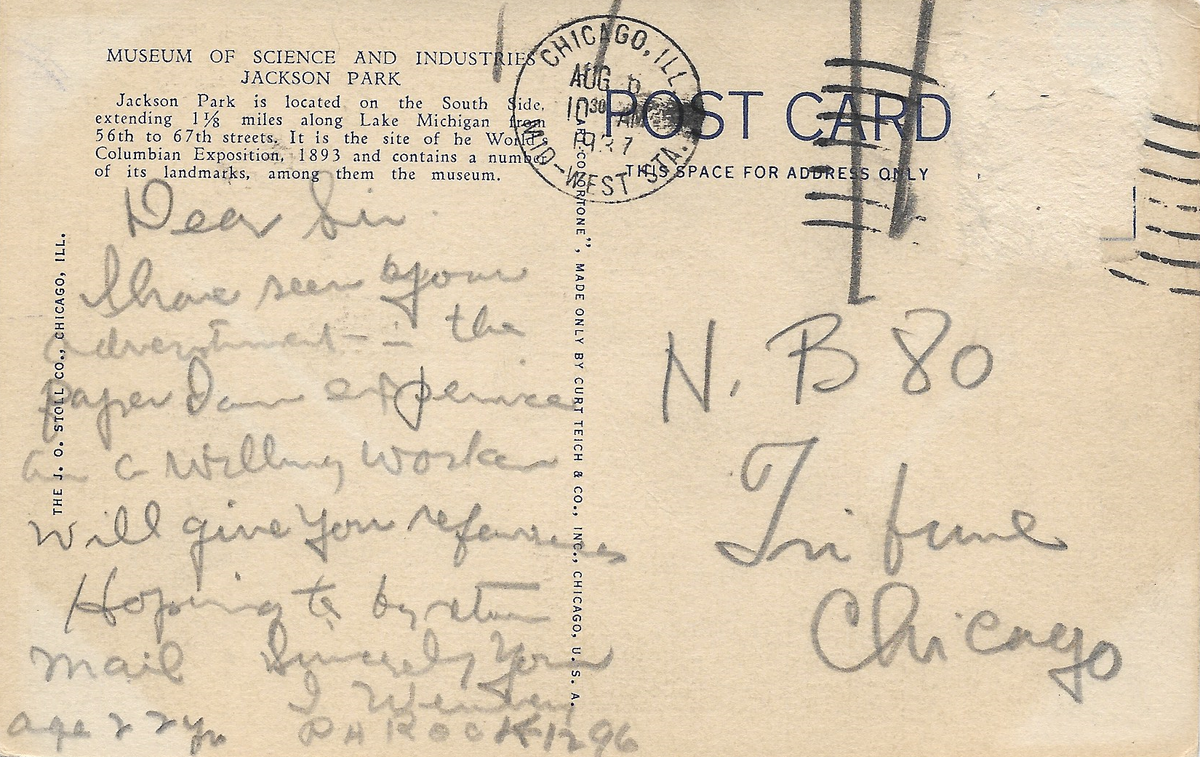 MUSEUM OF SCIENCE AND INDUSTRIES
JACKSON PARK
Jackson Park is located on the South Side,
extending 1⅛ miles along Lake Michigan from
56th to 67th streets. It is the site of he World's
Columbian Exposition, 1893 and contains a number
of its landmarks, among them the museum.
CHICAGO, ILL.
AUG 6
10 30 AM
1937
MID-WEST STA.
POST CARD
THIS SPACE FOR ADDRESS ONLY
THE J. O. STOLL CO., CHICAGO, ILL.
COLORTONE", MADE ONLY BY CURT TEICH & CO., INC., CHICAGO, U. S. A.
Dear Sir
I have seen your
in the
paper I am
am a willing worker
Will give you references
Hoping to by return
mail Sincerely Yours
I
age 22 yr PH ROCK 1296
N. B 80
Tribune
Chicago